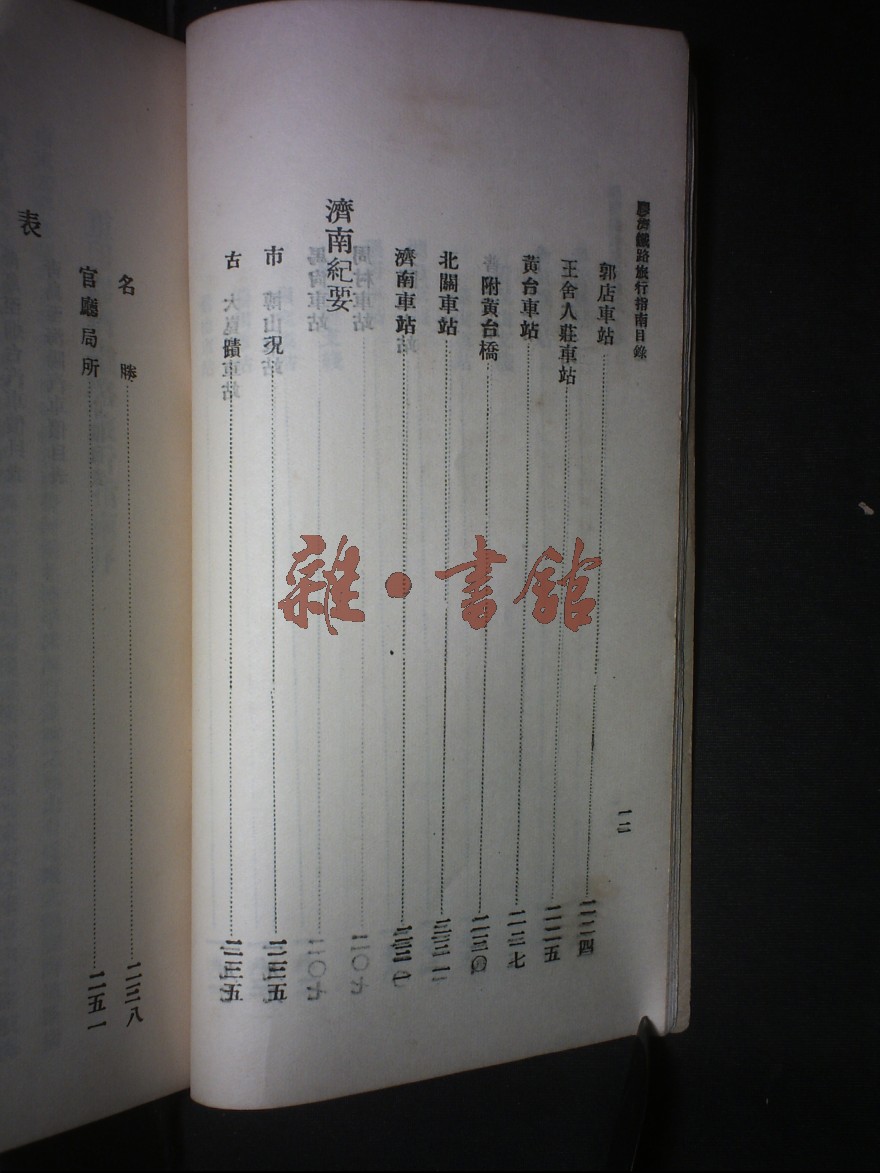 膠濟鐵路旅行指南目錄
一二
郭店車站 二二四
王舍人莊車站 二二五
黃台車站 二二七
附黃台橋
北關車站
濟南車站
濟南紀要
市況 二三五
古蹟 二三五
名勝 二三八
官廳局所 二五一
表
雜·書館